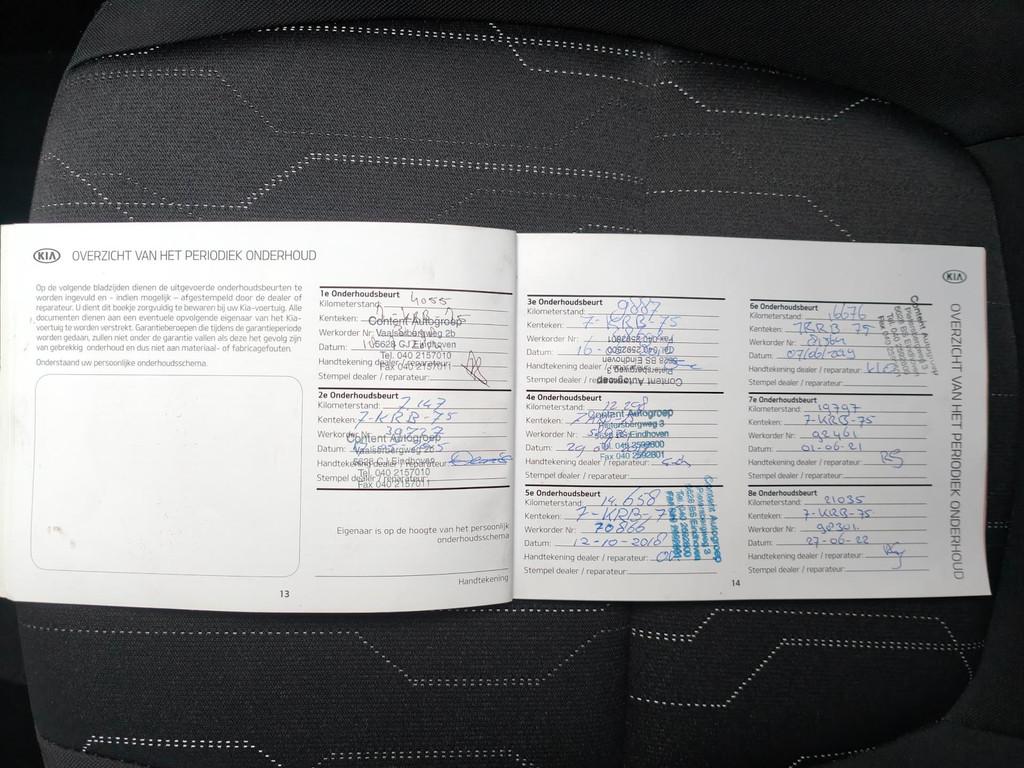 KIA OVERZICHT VAN HET PERIODIEK ONDERHOUD
Op de volgende bladzijden dienen de uitgevoerde onderhoudsbeurten te
worden ingevuld en - indien mogelijk - afgestempeld door de dealer of
reparateur. U dient dit boekje zorgvuldig te bewaren bij uw Kia-voertuig. Alle
documenten dienen aan een eventuele opvolgende eigenaar van het Kia-
voertuig te worden verstrekt. Garantieberoepen die tijdens de garantieperiode
worden gedaan, zullen niet onder de garantie vallen als deze het gevolg zijn
van gebrekkig onderhoud en dus niet aan materiaal- of fabricagefouten.
Onderstaand uw persoonlijke onderhoudsschema.
1e Onderhoudsbeurt
Kilometerstand: 4055
Kenteken: 7-KRB-75
Content Autogroep
Werkorder Nr: Vaalserbergweg 2b
Datum: 5628 CJ Eindhoven
Tel. 040 2157010
Handtekening dealer / reparateur:
Fax 040 2157011
Stempel dealer / reparateur:
2e Onderhoudsbeurt
Kilometerstand: 7147
Kenteken: 7-KRB-75
Werkorder Nr: 39727
Content Autogroep
Datum: Vaalserbergweg 2b
5628 CJ Eindhoven
Handtekening dealer / reparateur: Dennis
Tel. 040 2157010
Stempel dealer / reparateur:
Fax 040 2157011
Eigenaar is op de hoogte van het persoonlijk
onderhoudsschema
Handtekening
13
3e Onderhoudsbeurt
Kilometerstand: 9887
Kenteken: 7-KRB-75
Werkorder Nr:
Fax 040 2592801
Datum: 16-
Tel. 040 2592800
5628 BS Eindhoven
Handtekening dealer / reparateur:
Pietersbergweg 3
Stempel dealer / reparateur:
Content Autogroep
4e Onderhoudsbeurt
Kilometerstand: 12.298
Content Autogroep
Kenteken:
Pietersbergweg 3
Werkorder Nr:
5628 BS Eindhoven
Datum: 29
Tel. 040 2592800
Fax 040 2592801
Handtekening dealer / reparateur:
Stempel dealer / reparateur:
5e Onderhoudsbeurt
Kilometerstand: 14.658
Kenteken: 7-KRB-7
Werkorder Nr: 70866
Datum: 12-10-2018
Handtekening dealer / reparateur:
Stempel dealer / reparateur:
Content Autogroep
Pietersbergweg 3
5628 BS Eindhoven
Tel. 040 2592800
Fax 040 2592801
14
KIA
6e Onderhoudsbeurt
Kilometerstand: 16676
Kenteken: 7KRB 75
Werkorder Nr: 81564
Datum:
Handtekening dealer / reparateur:
Stempel dealer / reparateur:
Content Autogroep
7e Onderhoudsbeurt
Kilometerstand: 19797
Kenteken: 7-KRB-75
Werkorder Nr: 92461
Datum: 01-06-21
Handtekening dealer / reparateur:
Stempel dealer / reparateur:
8e Onderhoudsbeurt
Kilometerstand: 21035
Kenteken: 7-KRB-75
Werkorder Nr: 98301
Datum: 27-06-22
Handtekening dealer / reparateur:
Stempel dealer / reparateur:
OVERZICHT VAN HET PERIODIEK ONDERHOUD